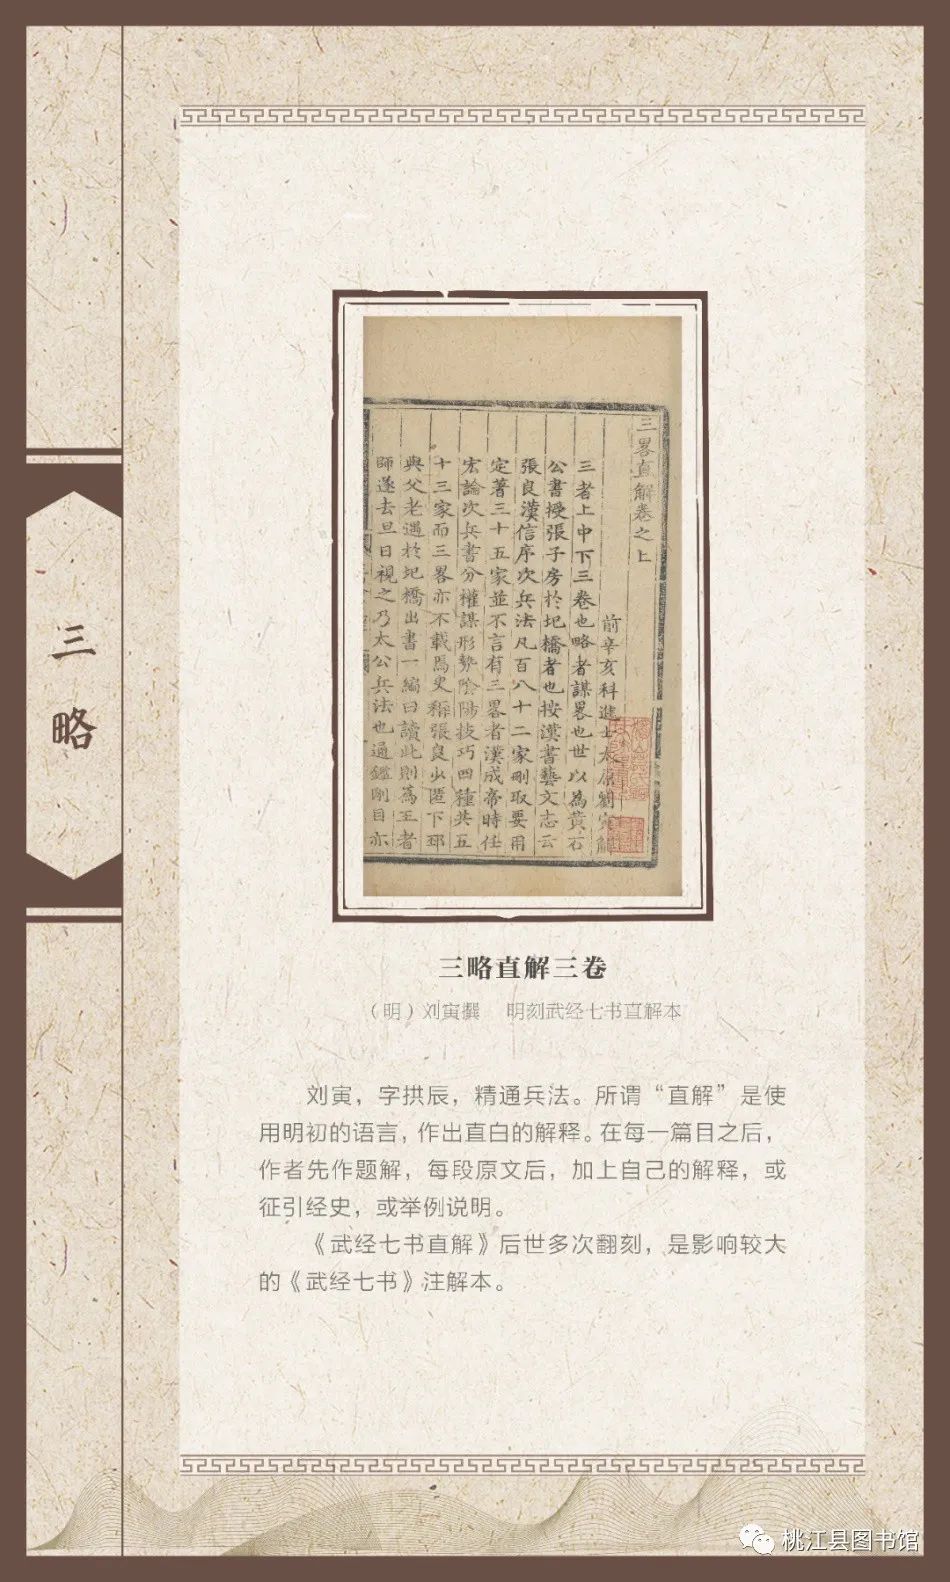 三略
三畧直解卷之上
前辛亥科進士太原劉寅解
三者上中下三卷也略者謀畧也世以為黃石
公書授張子房於圯橋者也按漢書藝文志云
張良漢信序次兵法凡百八十二家刪取要用
定著三十五家並不言有三畧者漢成帝時任
宏論次兵書分權謀形勢陰陽技巧四種共五
十三家而三畧亦不載焉史稱張良少匿下邳
與父老遇於圯橋出書一編曰讀此則為王者
師遂去旦日視之乃太公兵法也通鑑剛目亦
三略直解三卷
（明）刘寅撰 明刻武经七书直解本
刘寅，字拱辰，精通兵法。所谓“直解”是使
用明初的语言，作出直白的解释。在每一篇目之后，
作者先作题解，每段原文后，加上自己的解释，或
征引经史，或举例说明。
《武经七书直解》后世多次翻刻，是影响较大
的《武经七书》注解本。
桃江县图书馆